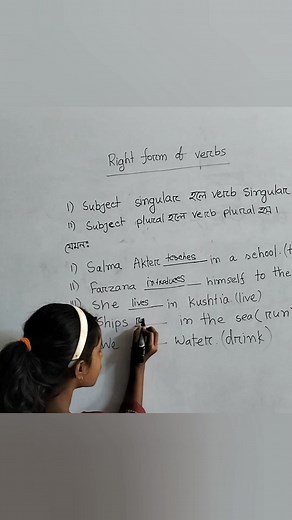 Right form of verbs
i) Subject singular হলে verb Singular
ii) Subject plural হলে verb plural হয়।
যেমনঃ
i) Salma Akter teaches in a school.
ii) Farzana introduces himself to the
She lives in kushtia (live)
Ships in the sea (run
We water. (drink)